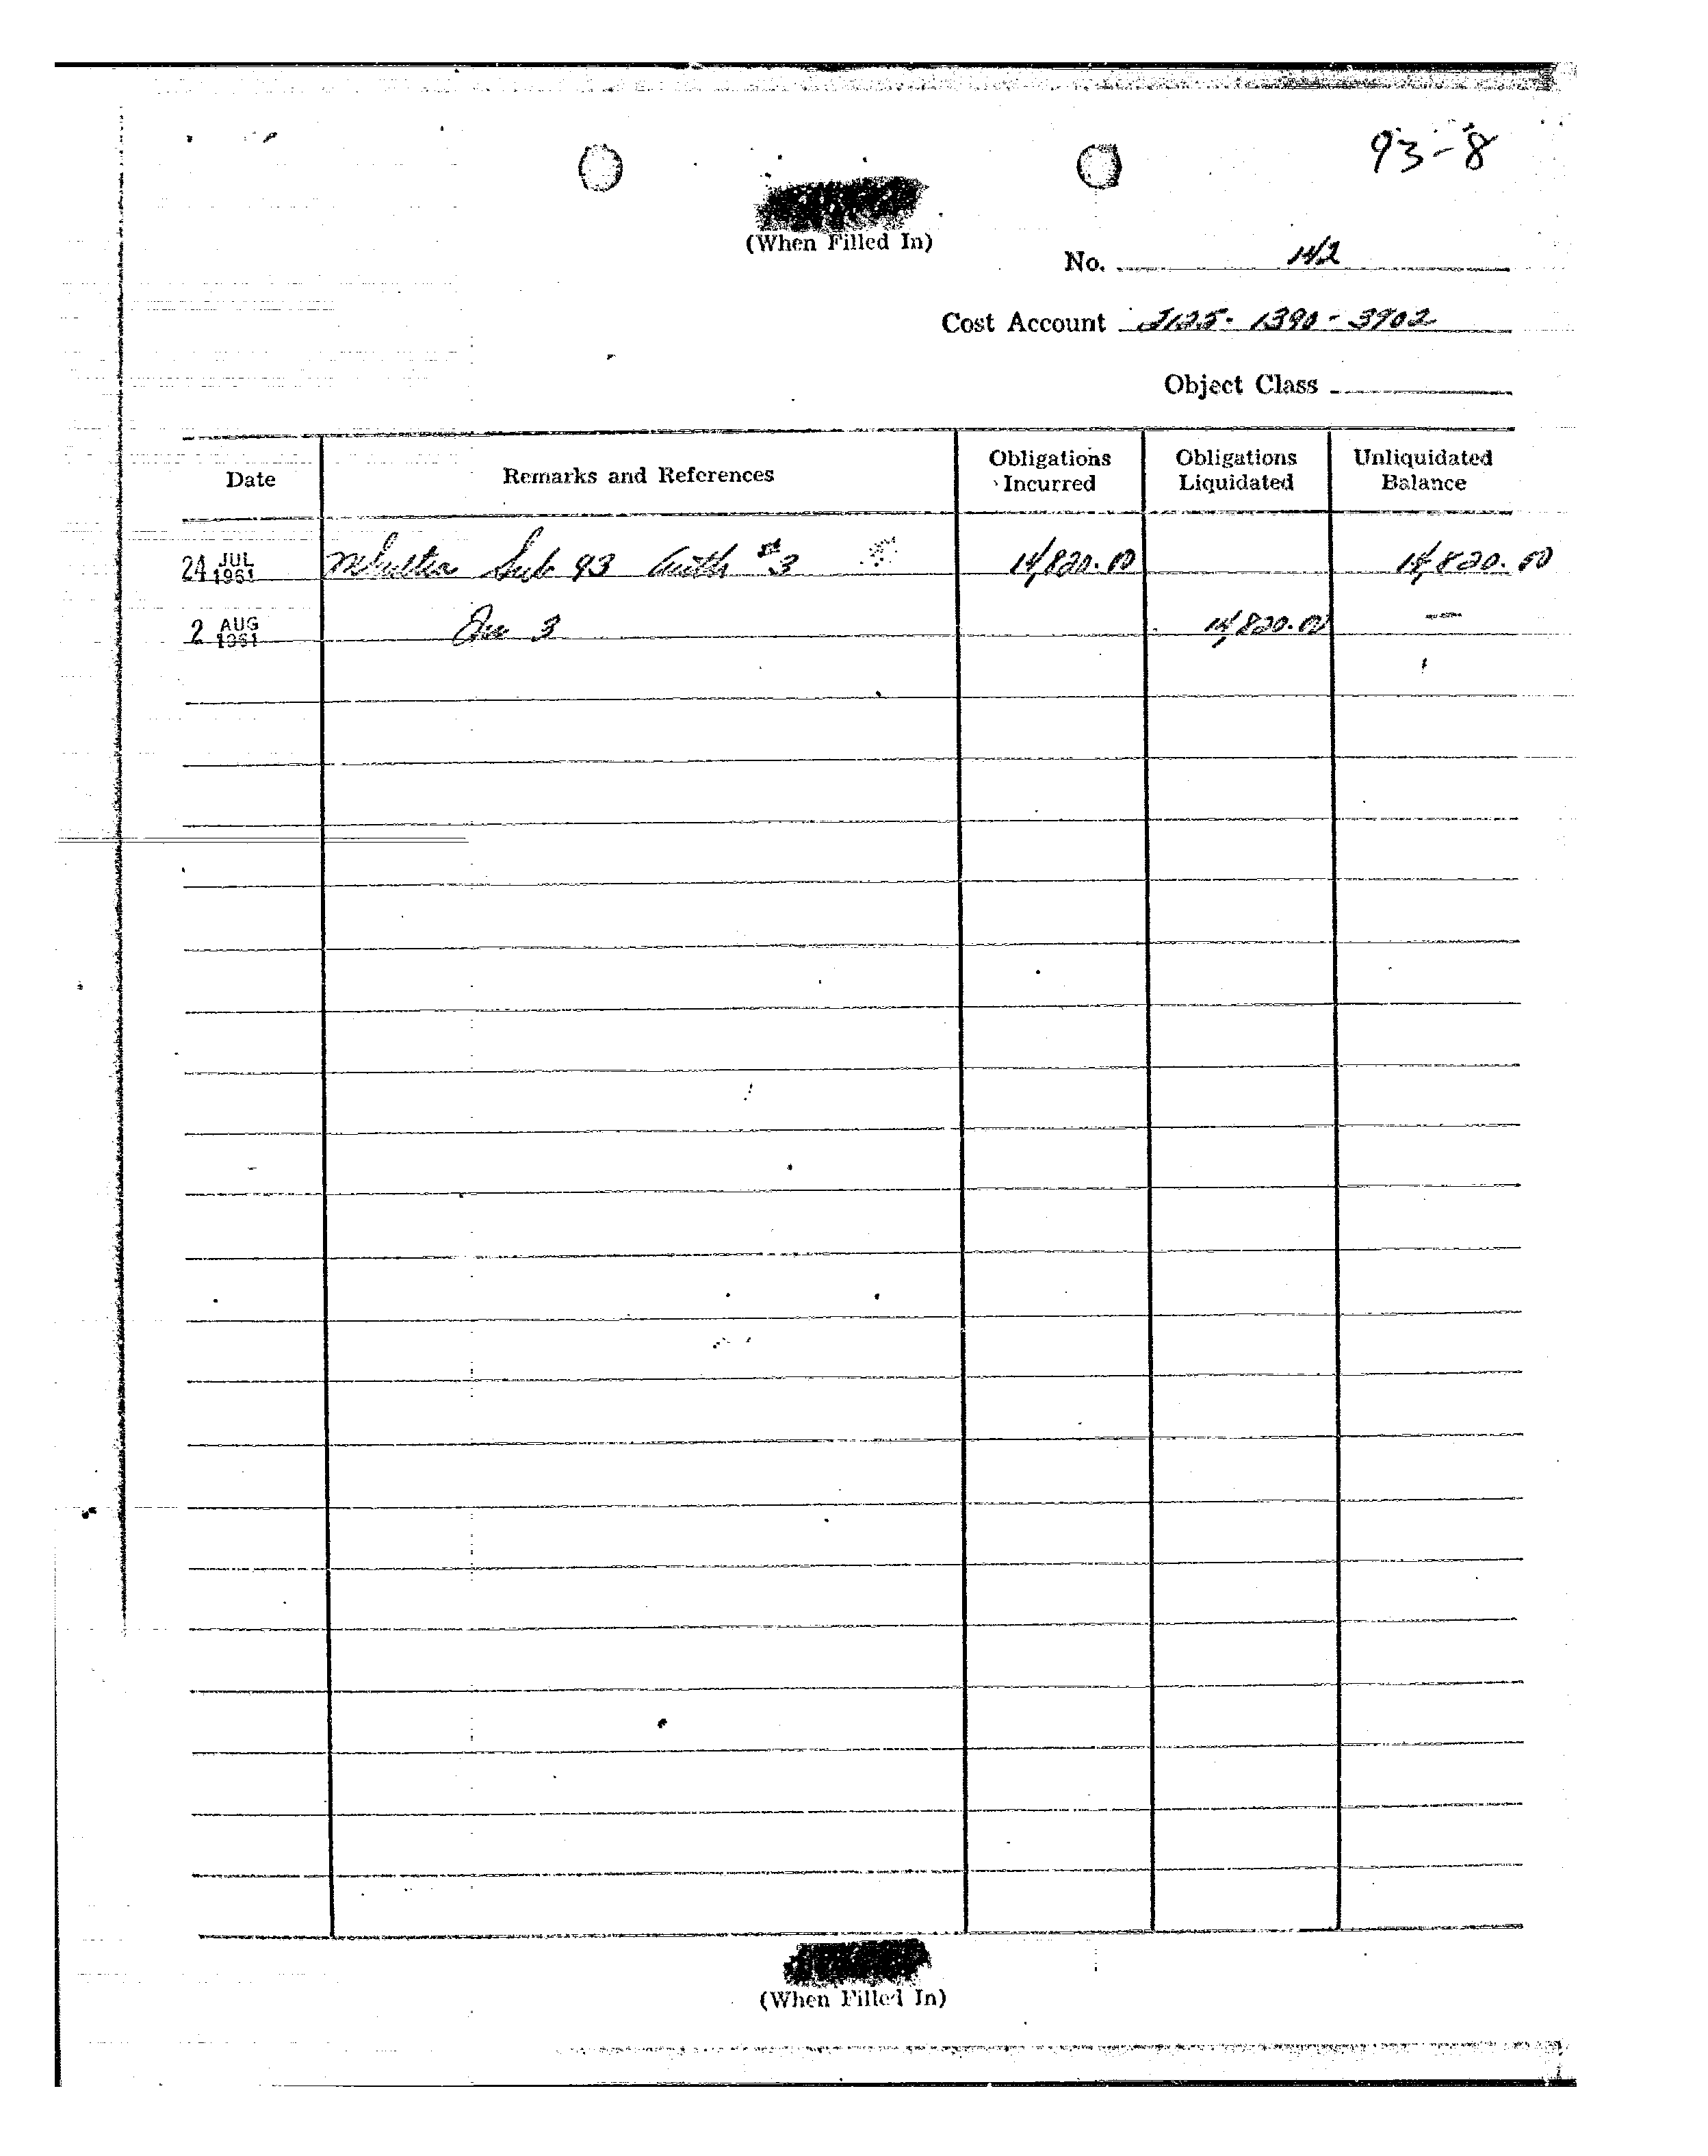 93-8
(When Filled In)
No. 142
Cost Account 2125-1390-3902
Object Class
Date Remarks and References Obligations Incurred Obligations Liquidated Unliquidated Balance
24 JUL 1961 Mkultra Sub 93 Auth #3 14,820.00 14,820.00
2 AUG 1961 Inv 3 14,820.00 —
(When Filled In)